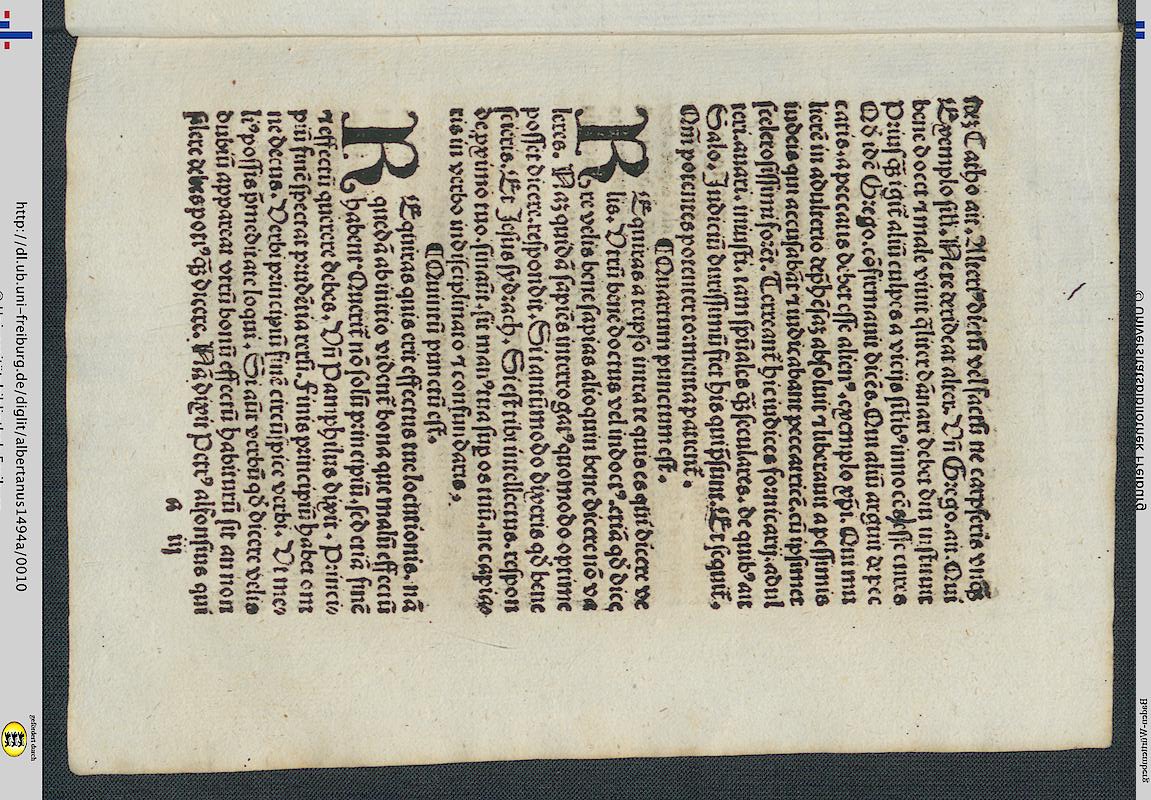 nez Catho ait. Alteri⁹ dictū vel factū ne carpseris vnq̄ȝ
Exemplo sili. Ne te derideat alter. Vn̄ Grego. ait. Qui
bene docet ⁊ male viuit q̄liter dānari debet diu instruit
Prius q̄ȝ igit̄ aliū culpes a viciis silib⁹ innocēs esse cures
Qd̄ idē Grego. cōfirmauit dicēs. Qui aliū arguit de pec
catis. a peccatis debet esse alien⁹. exemplo xp̄i. Qui mu
lierē in adulterio dep̄hēsaȝ absoluit ⁊ liberauit a pessimis
iudeis qui accusabāt ⁊ iudicabant peccatricē. cū ipsimet
scelerosissimi forēt. Terreant̄ hic iudices fornicarij. adul
teri. auari. iniusti. tam sp̄uales q̄ȝ seculares. de quib⁹ ait
Salo. Iudiciū durissimū fiet his qui p̄sunt. Et sequit̄.
Qm̄ potentes potenter tormenta patient̄.
¶ Quartum punctum est.
REquiras a teipso intra te quis es qui dicere ve
lis. Vtrū bene doctus vel indoct⁹. etiā qd̄ dice
re velis bene sapias alioquin bene dicere nō va
leres. Naȝ quidā sapiēs interrogat⁹ quomodo optime
posset dicere. respondit. Si tantūmodo dixeris qd̄ bene
scieris. Et Jesus sydrach. Si est tibi intellectus. respon
de p̄ximo tuo. sin aūt. sit man⁹ tua sup os tuū. ne capia⸗
ris in verbo indisciplinato ⁊ confundaris.
¶ Quintū punctū est.
REquiras quis erit effectus tue locutionis. nā
quedā ab initio vident̄ bona que malū effectū
habent Querit̄ nō solū principiū. sed etiā finē
⁊ effectū querere debes. Vn̄ Pamphilus dixit. Princi⸗
piū finē spectat prudētia recti. Finis principiū habet om
ne decus. Verbi principiū finē circūspice verbi. Vt me⸗
li⁹ possis p̄meditate loqui. Si aūt verbū qd̄ dicere velis
dubiū appareat vtrū bonū effectū habiturū sit an non
silere debes poti⁹ q̄ȝ dicere. Nā dixit Petr⁹ alfonsius qui
a iij
http://dl.ub.uni-freiburg.de/diglit/albertanus1494a/0010
gefördert durch